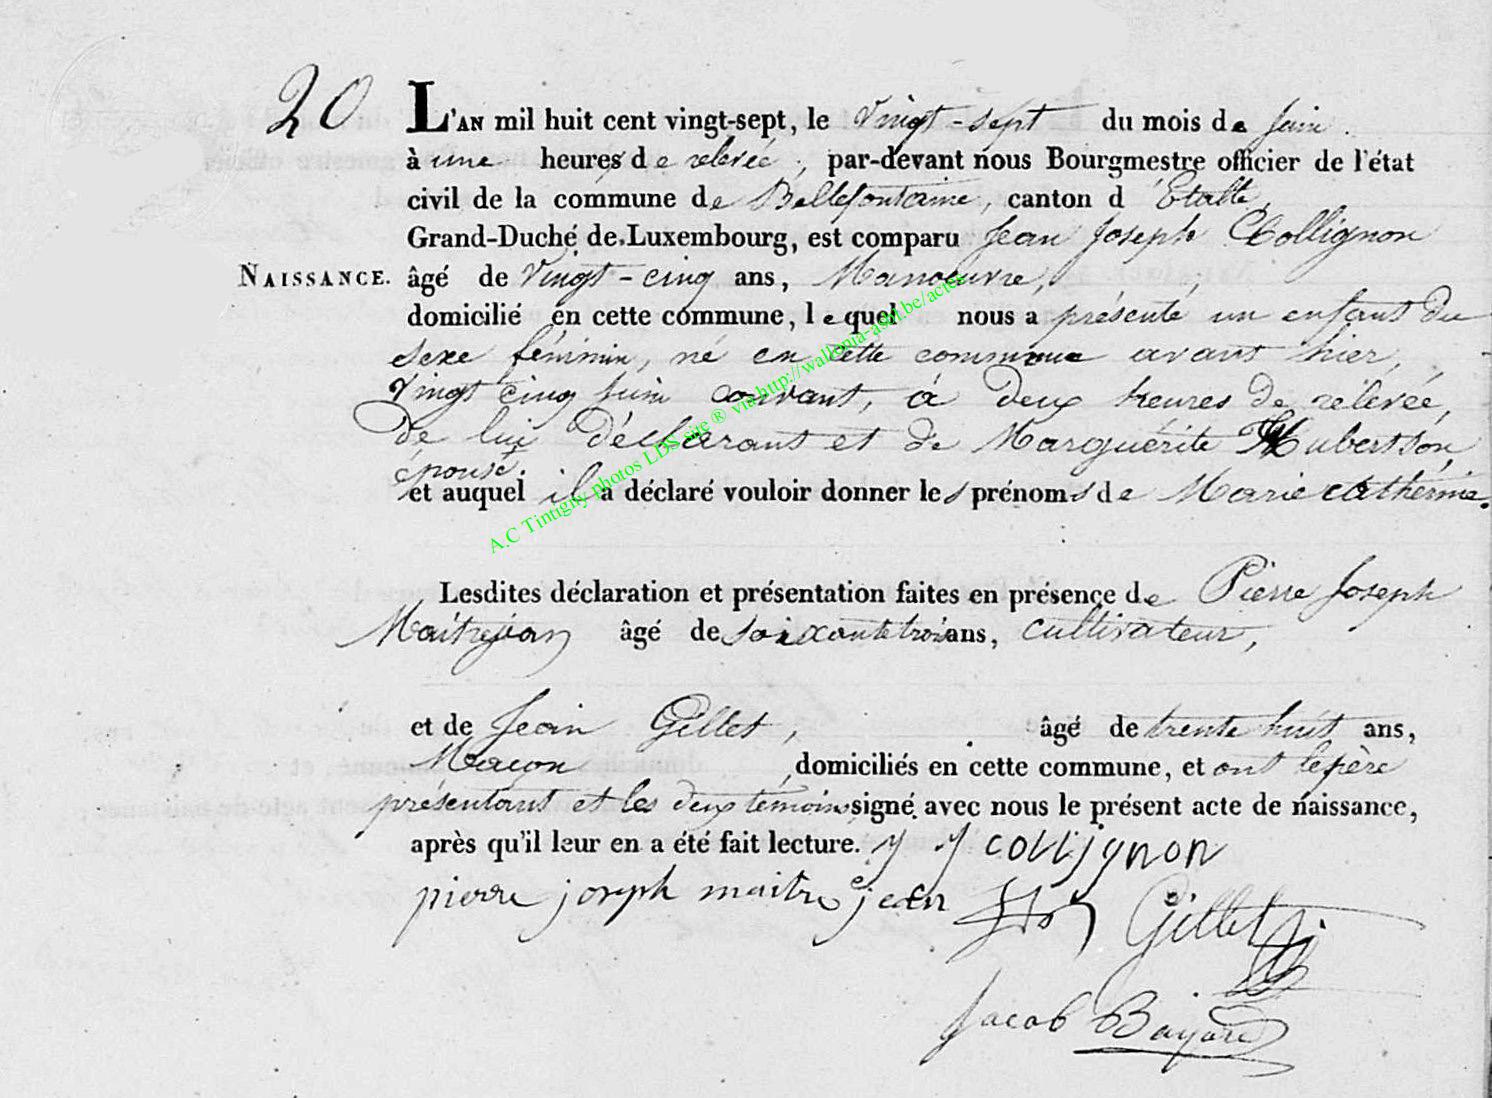 20
L'AN mil huit cent vingt-sept, le Vingt-sept du mois de Juin.
à une heures de relevée, par-devant nous Bourgmestre officier de l'état
civil de la commune de Bellefontaine, canton d'Etalle,
Grand-Duché de Luxembourg, est comparu Jean Joseph Collignon
NAISSANCE. âgé de Vingt-cinq ans, Manoeuvre,
domicilié en cette commune, lequel nous a présenté un enfant du
sexe féminin, né en cette commune avant hier,
vingt cinq Juin courant, à deux heures de relevée,
de lui Déclarant et de Marguérite Hubertson,
épouse.
et auquel il a déclaré vouloir donner les prénoms de Marie Catherine.
A.C Tintigny photos LDS site ® via http://wallonia-asbl.be/actes
Lesdites déclaration et présentation faites en présence de Pierre Joseph
Maitrejean âgé de soixante trois ans, cultivateur,
et de Jean Gillet, âgé de trente huit ans,
Maçon, domiciliés en cette commune, et ont le père
présentant et les deux témoins signé avec nous le présent acte de naissance,
après qu'il leur en a été fait lecture. J J collignon
pierre joseph maitre jean Gillet
Jacob Bayard